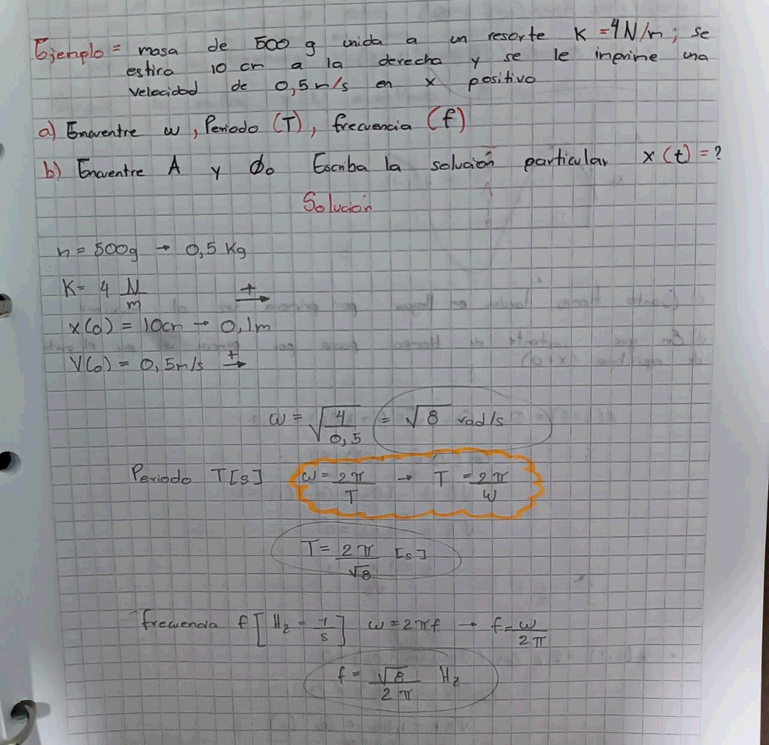 Ejemplo = masa de 500 g unida a un resorte K = 4 N/m; se
estira 10 cm a la derecha y se le imprime una
velocidad de 0,5 m/s en x positivo
a) Encuentre ω, Periodo (T), frecuencia (f)
b) Encuentre A y Ø₀ Escriba la solución particular x(t) = ?
Solución
m = 500g → 0,5 Kg
K = 4 N/m
+→
x(0) = 10cm → 0,1m
V(0) = 0,5m/s +→
ω = √(4/0,5) = √8 rad/s
Periodo T[s] ω = 2π/T → T = 2π/ω
T = 2π/√8 [s]
frecuencia f [Hz = 1/s] ω = 2πf → f = ω/2π
f = √8/2π Hz